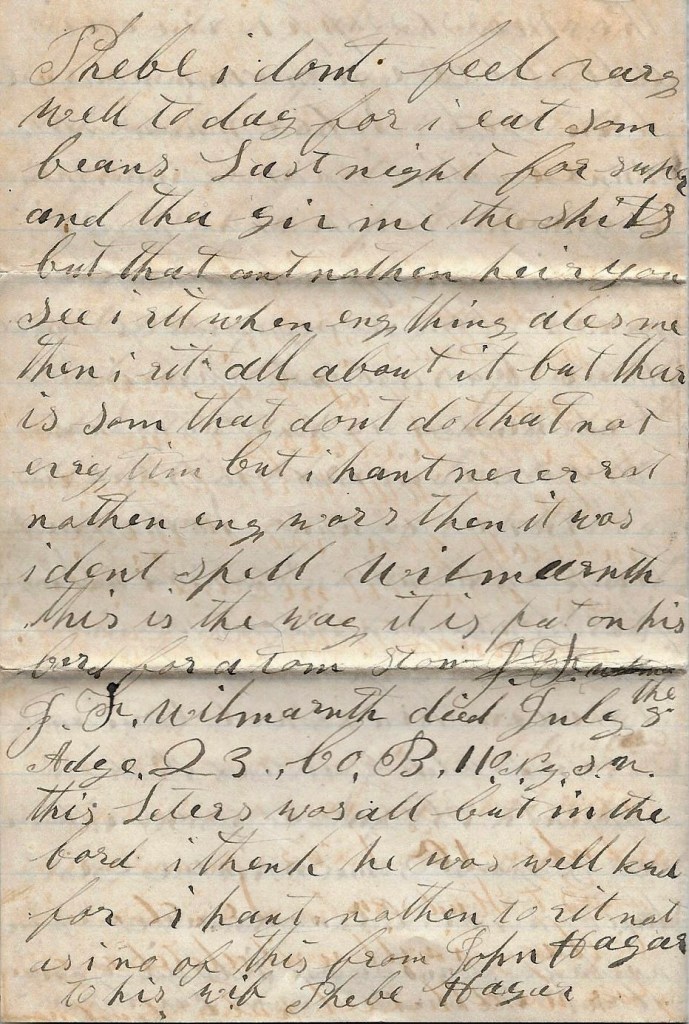 Phebe i dont feel varg
well to dag for i eat som
beans Last night for super
and tha giv me the shits
but that ant nathen heir you
see i rit when eng thing ales me
then i rit all about it but thar
is som that dont do that not
evry tim but i hant never rot
nathen eng wors then it was
i dont spell Wilmarnth
this is the wag it is put on his
bord for a tom ston J. F.
J. F. Wilmarnth died July the 3
Adge. 23., Co, B, 110, N.y.S.v.
this Leters was all cut in the
bord i thenk he was well
for i hant nathen to rit not
as i no of this from John Hagar
to his wif Phebe Hagar